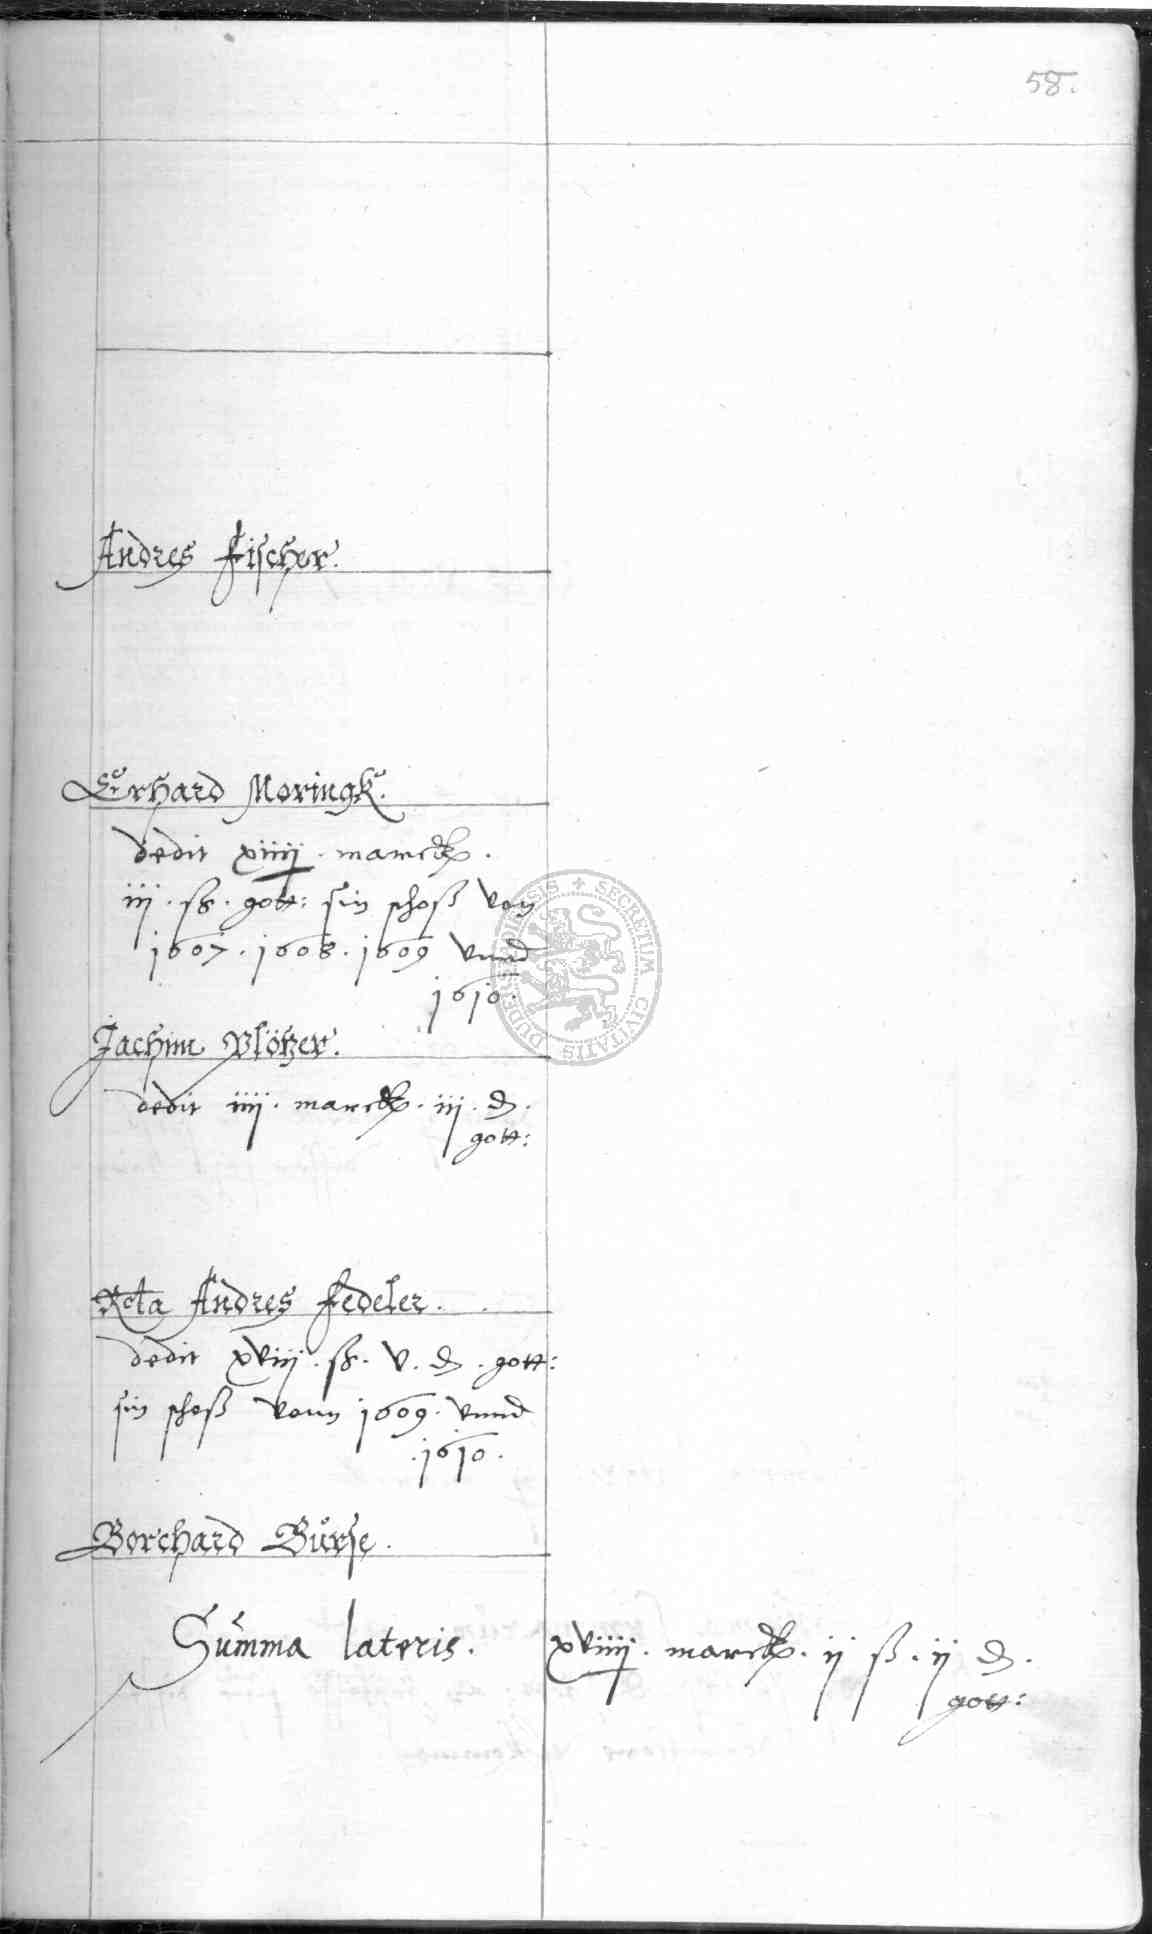 58.
Andres Fischer.
Erhard Moringk.
dedit xiiij . marck .
iij . ß . gott: sin schoß von
1607 . 1608 . 1609 vnnd
1610.
Jachim Plötzer.
dedit iiij . marck . iij . d .
gott:
Rcta Andres Fedeler .
dedit xviij . ß . v . d . gott:
sin schoß vonn 1609 . vnnd
. 1610 .
Borchard Bürse .
Summa lateris . xviiij . marck . ij ß . ij d .
gott:
SECRETUM CIVITATIS DUDERSTADIENSIS